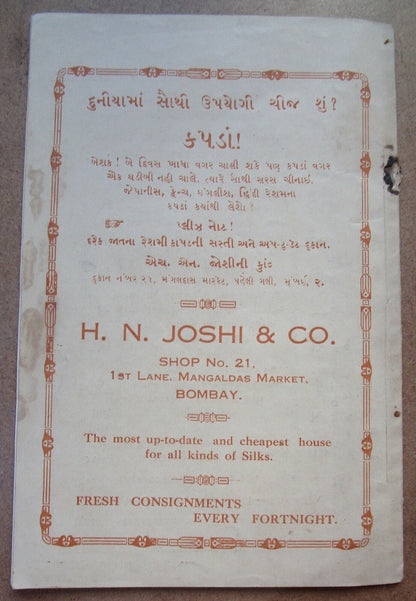 દુનીયામાં સૌથી ઉપયોગી ચીજ શું?
કપડાં!
બેશક! બે દિવસ ખાધા વગર ચાલી શકે પણ કપડાં વગર
એક ઘડીબી નહી ચાલે, ત્યારે સૌથી સરસ ચીનાઈ,
જેપાનીસ, ફ્રેન્ચ, ઇંગલીશ, હિંદી રેશમના
કપડાં કયાંથી લેશો!
પ્લીઝ નોટ!
દરેક જાતના રેશમી કાપડની સસ્તી અને અપ-ટુ-ડેટ દુકાન.
એચ. એન. જોશીની કુાં
દુકાન નંબર ૨૧, મંગલદાસ મારકેટ, પહેલી ગલી, મુંબઈ, ૨.
H. N. JOSHI & CO.
SHOP No. 21,
1ST LANE. MANGALDAS MARKET.
BOMBAY.
The most up-to-date and cheapest house
for all kinds of Silks.
FRESH CONSIGNMENTS
EVERY FORTNIGHT.